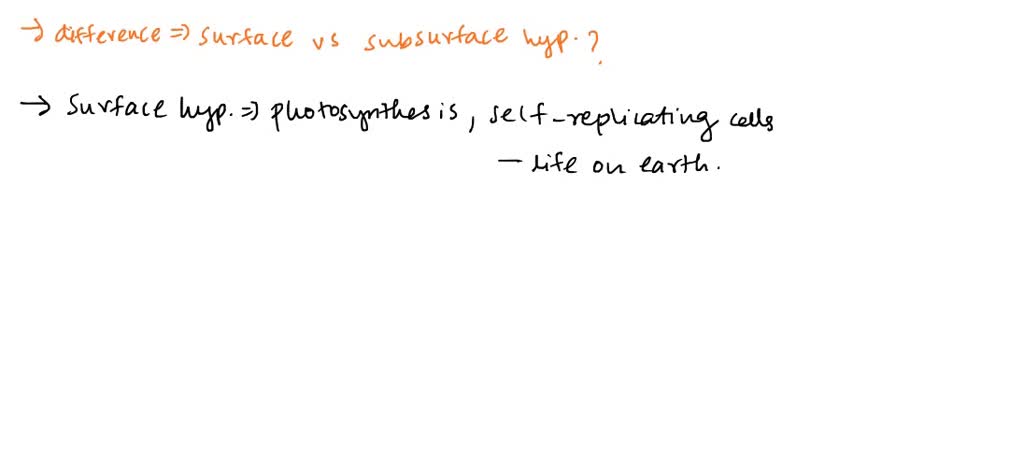 → difference ⇒ surface vs subsurface hyp. ?
→ Surface hyp. ⇒ photosynthesis, self-replicating cells
– life on earth.